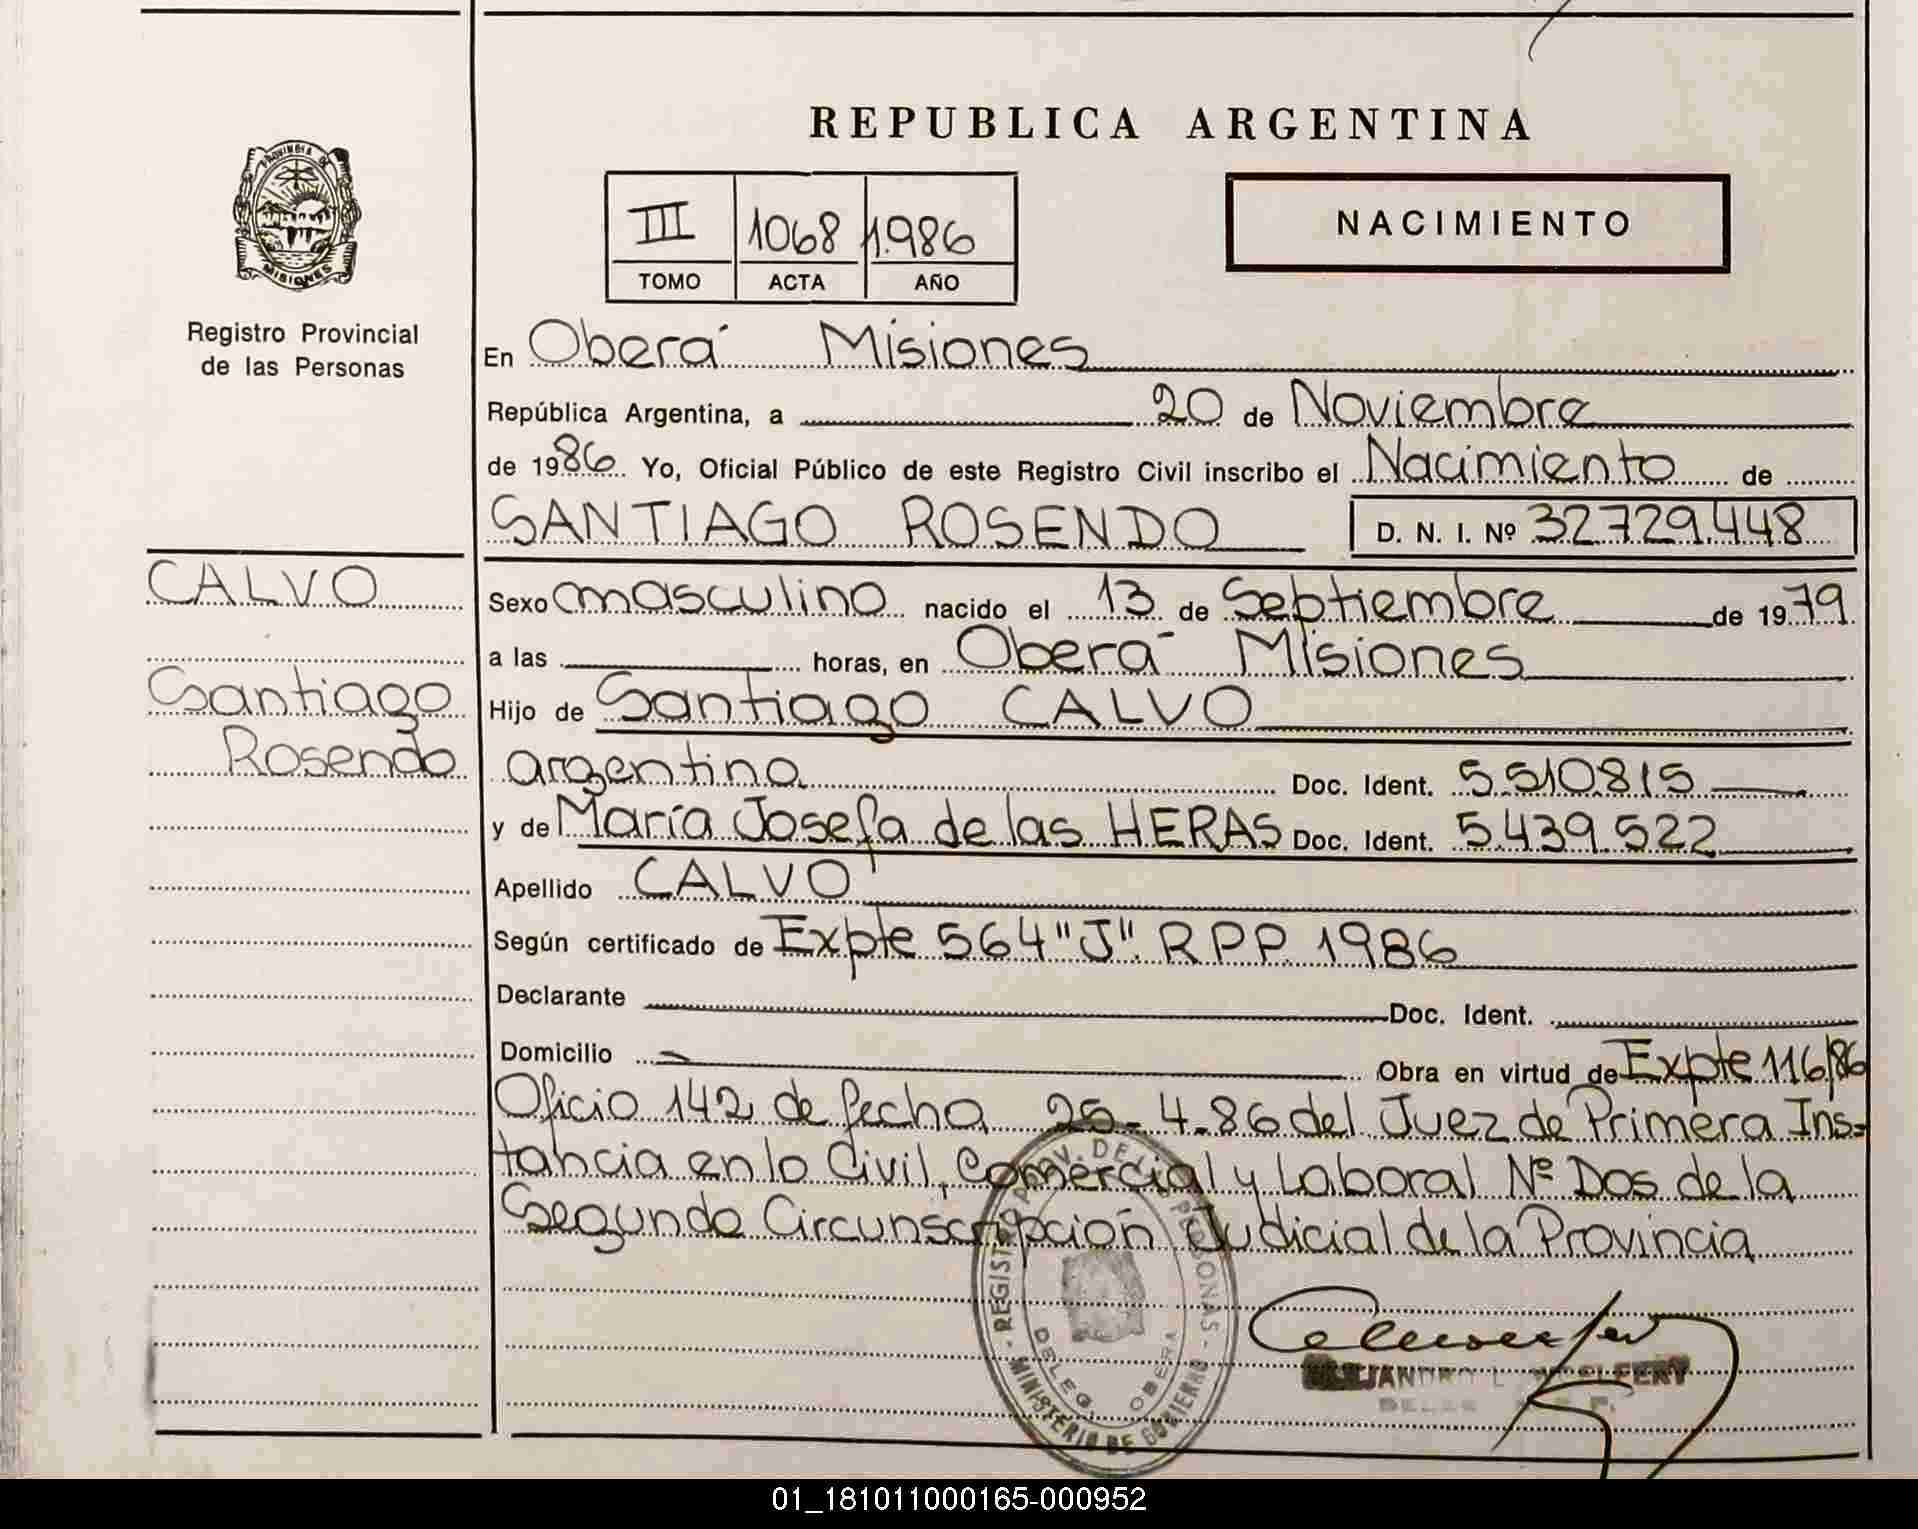 REPUBLICA ARGENTINA
PROVINCIA DE
MISIONES
Registro Provincial
de las Personas
III 1068 1.986
TOMO ACTA AÑO
NACIMIENTO
En Oberá Misiones
República Argentina, a 20 de Noviembre
de 1986 Yo, Oficial Público de este Registro Civil inscribo el Nacimiento de
SANTIAGO ROSENDO D. N. I. Nº 32.729.448
CALVO
Santiago
Rosendo
Sexo masculino nacido el 13 de Septiembre de 1979
a las horas, en Oberá Misiones
Hijo de Santiago CALVO
argentino Doc. Ident. 5.510.815
y de María Josefa de las HERAS Doc. Ident. 5.439.522
Apellido CALVO
Según certificado de Expte 564 "J". R.P.P. 1986
Declarante Doc. Ident.
Domicilio Obra en virtud de Expte 116/86
Oficio 142 de fecha 25-4-86 del Juez de Primera Ins-
tancia en lo Civil, Comercial y Laboral Nº Dos de la
Segunda Circunscripción Judicial de la Provincia
REGISTRO PROV. DE LAS PERSONAS
DELEG. OBERA
- MINISTERIO DE GOBIERNO -
01_181011000165-000952